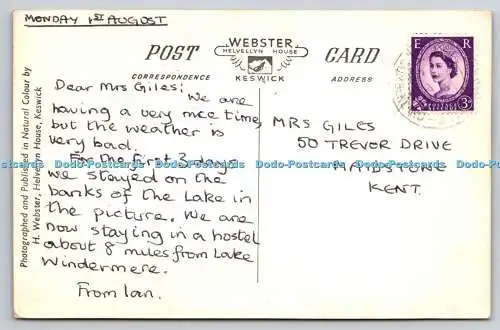 MONDAY 1ST AUGUST
POST CARD
WEBSTER
HELVELLYN HOUSE
KESWICK
CORRESPONDENCE
ADDRESS
E R
POSTAGE REVENUE
3D
Dear Mrs Giles;
We are
having a very nice time,
but the weather is
very bad.
For the first 3 days
we stayed on the
banks of the Lake in
the picture. We are
now staying in a hostel
about 8 miles from Lake
Windermere.
From Ian.
MRS GILES
50 TREVOR DRIVE
MAIDSTONE
KENT.
Photographed and Published in Natural Colour by
H. Webster, Helvellyn House, Keswick
Dodo-Postcards Dodo-Postcards Dodo-Postcards Dodo-Postcards Dodo-Postcards Dodo-Postcards